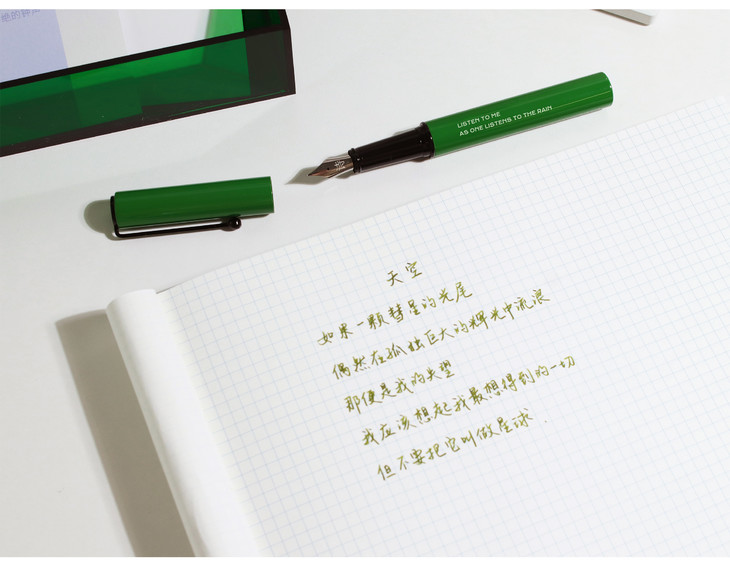 LISTEN TO ME
AS ONE LISTENS TO THE RAIN
天空
如果一颗彗星的光尾
偶然在孤独巨大的辉光中流浪
那便是我的失望
我应该想起我最想得到的一切
但不要把它叫做星球.